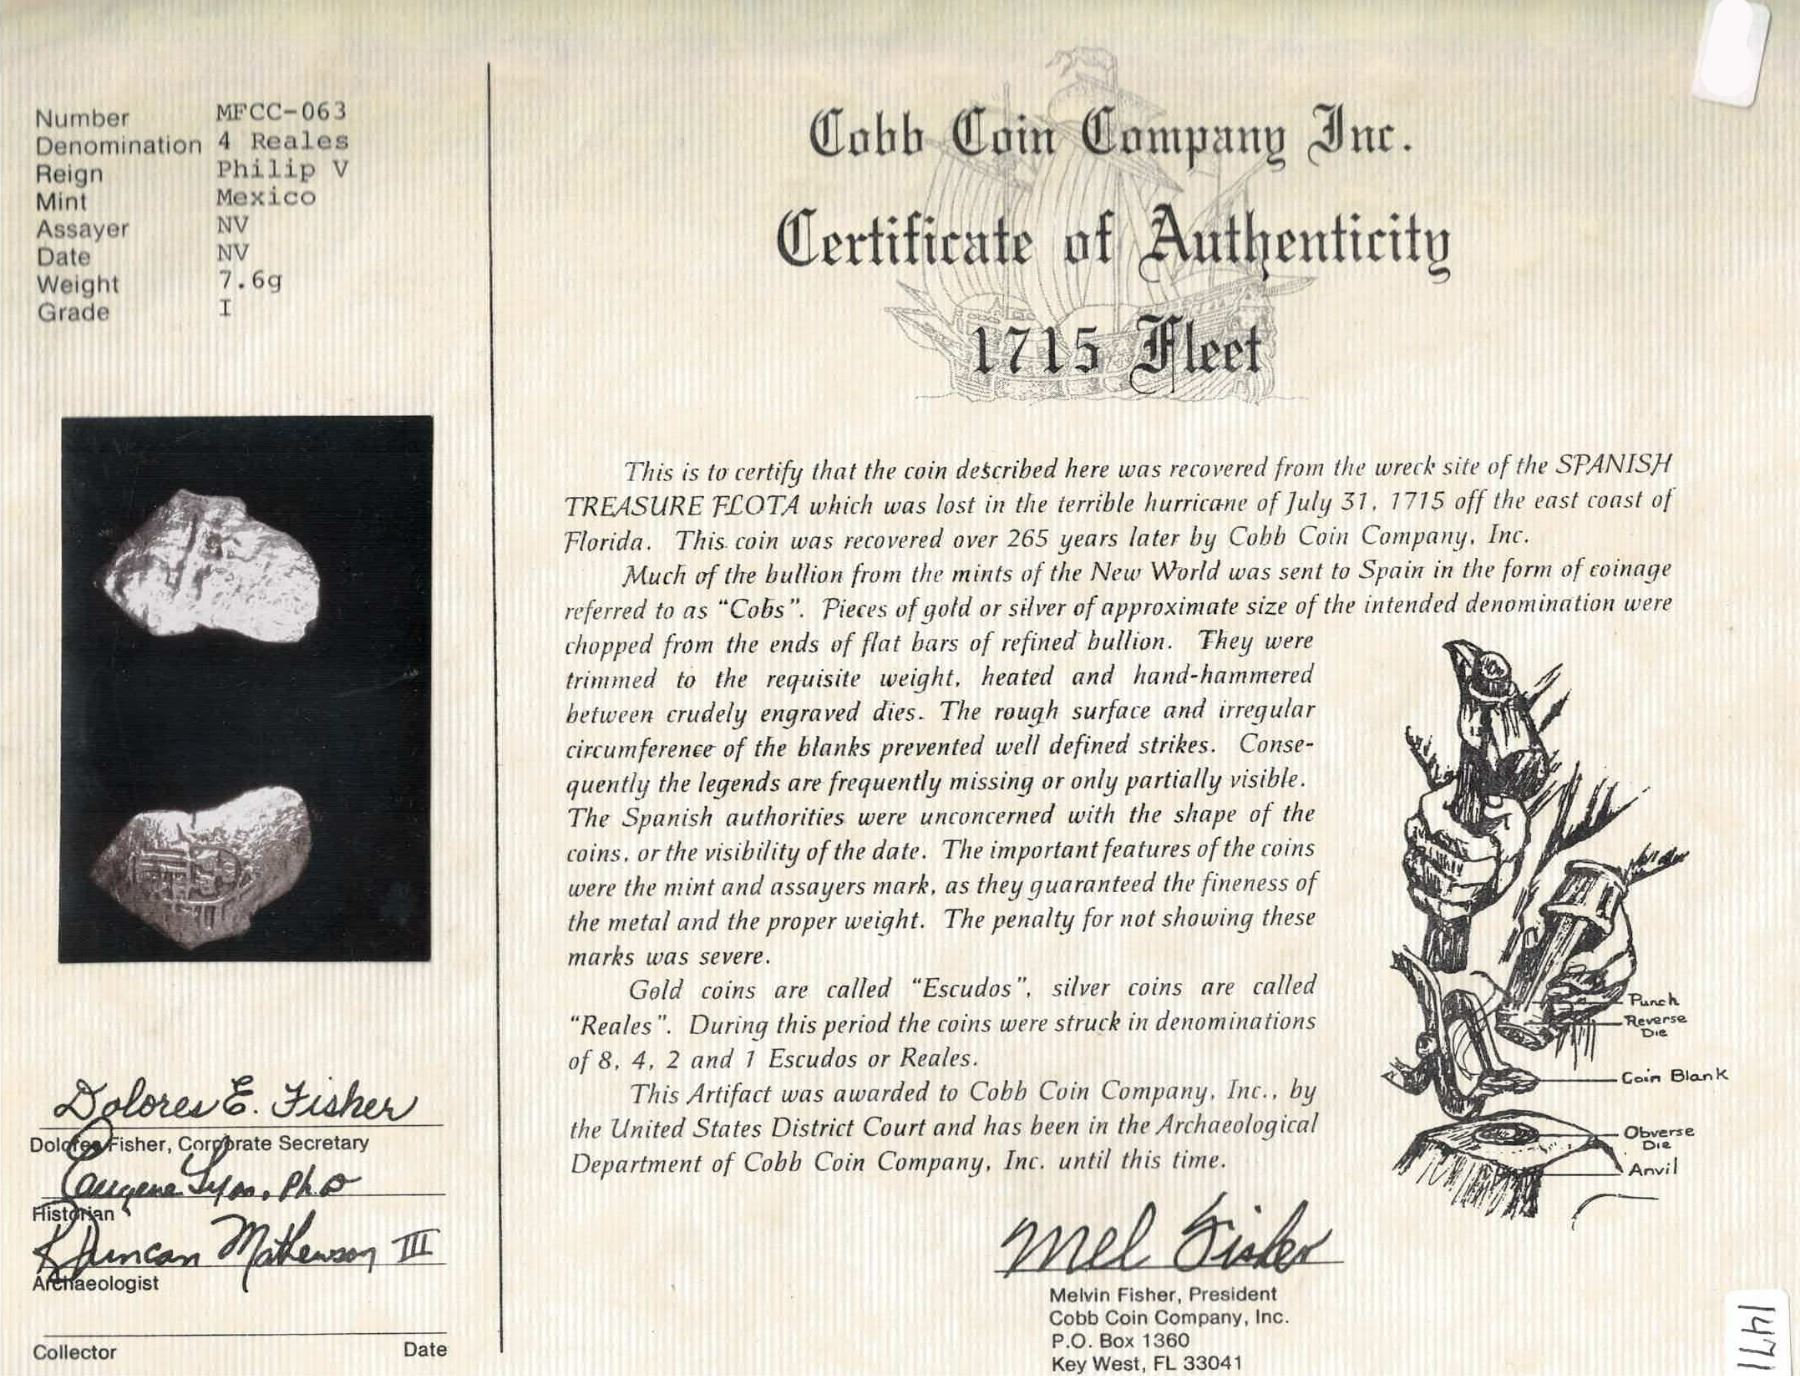 Number MFCC-063
Denomination 4 Reales
Reign Philip V
Mint Mexico
Assayer NV
Date NV
Weight 7.6g
Grade I
Dolores E. Fisher
Dolores Fisher, Corporate Secretary
Eugene Lyon, PhD
Historian
R Duncan Mathewson III
Archaeologist
Collector Date
Cobb Coin Company Inc.
Certificate of Authenticity
1715 Fleet
This is to certify that the coin described here was recovered from the wreck site of the SPANISH
TREASURE FLOTA which was lost in the terrible hurricane of July 31, 1715 off the east coast of
Florida. This coin was recovered over 265 years later by Cobb Coin Company, Inc.
Much of the bullion from the mints of the New World was sent to Spain in the form of coinage
referred to as “Cobs”. Pieces of gold or silver of approximate size of the intended denomination were
chopped from the ends of flat bars of refined bullion. They were
trimmed to the requisite weight, heated and hand-hammered
between crudely engraved dies. The rough surface and irregular
circumference of the blanks prevented well defined strikes. Conse-
quently the legends are frequently missing or only partially visible.
The Spanish authorities were unconcerned with the shape of the
coins, or the visibility of the date. The important features of the coins
were the mint and assayers mark, as they guaranteed the fineness of
the metal and the proper weight. The penalty for not showing these
marks was severe.
Gold coins are called “Escudos”, silver coins are called
“Reales”. During this period the coins were struck in denominations
of 8, 4, 2 and 1 Escudos or Reales.
This Artifact was awarded to Cobb Coin Company, Inc., by
the United States District Court and has been in the Archaeological
Department of Cobb Coin Company, Inc. until this time.
Punch
Reverse
Die
Coin Blank
Obverse
Die
Anvil
Mel Fisher
Melvin Fisher, President
Cobb Coin Company, Inc.
P.O. Box 1360
Key West, FL 33041
1471